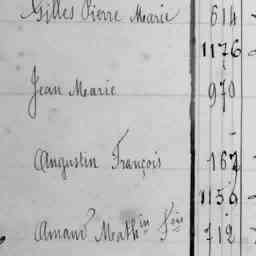 Gilles Pierre Marie 614
1176
Jean Marie 970
Augustin François 167
1156
Amand Math<sup>in</sup> F<sup>ois</sup> 712